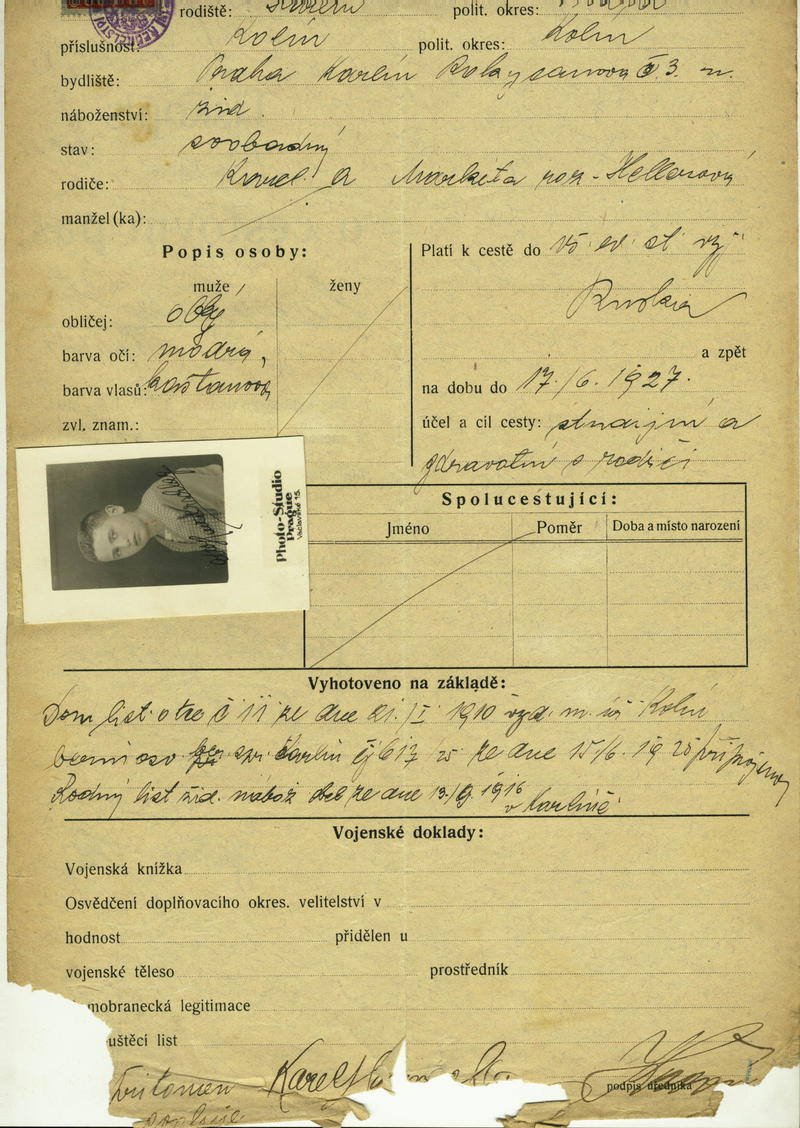 rodiště:
polit. okres:
příslušnost: Kolín polit. okres: Kolín
bydliště: Praha Karlín Rokysanova č 3. n.
náboženství: žid.
stav: svobodný
rodiče: Karel a Marketa roz. Hellerová
manžel(ka):
Popis osoby:
muže ženy
obličej:
barva očí: modrá,
barva vlasů: kaštanová
zvl. znam.:
Platí k cestě do vš ev. st. vyj
Ruska
a zpět
na dobu do 17./6. 1927.
účel a cíl cesty: studijní a
zdravotní s rodiči
Photo-Studio
Prague
Václavské 15.
Spolucestující:
Jméno Poměr Doba a místo narození
Vyhotoveno na základě:
Dom. list otce č 11 ze dne 21./I. 1910 vyd. m. úř Kolín
spr. Karlín čj 617 25 ze dne 15/6. 1925 připojeno
Rodný list žid. nábož ze dne 13./9. 1916
v Karlíně.
Vojenské doklady:
Vojenská knížka
Osvědčení doplňovacího okres. velitelství v
hodnost přidělen u
vojenské těleso prostředník
mobranecká legitimace
uštěcí list
Karel
podpis úředníka